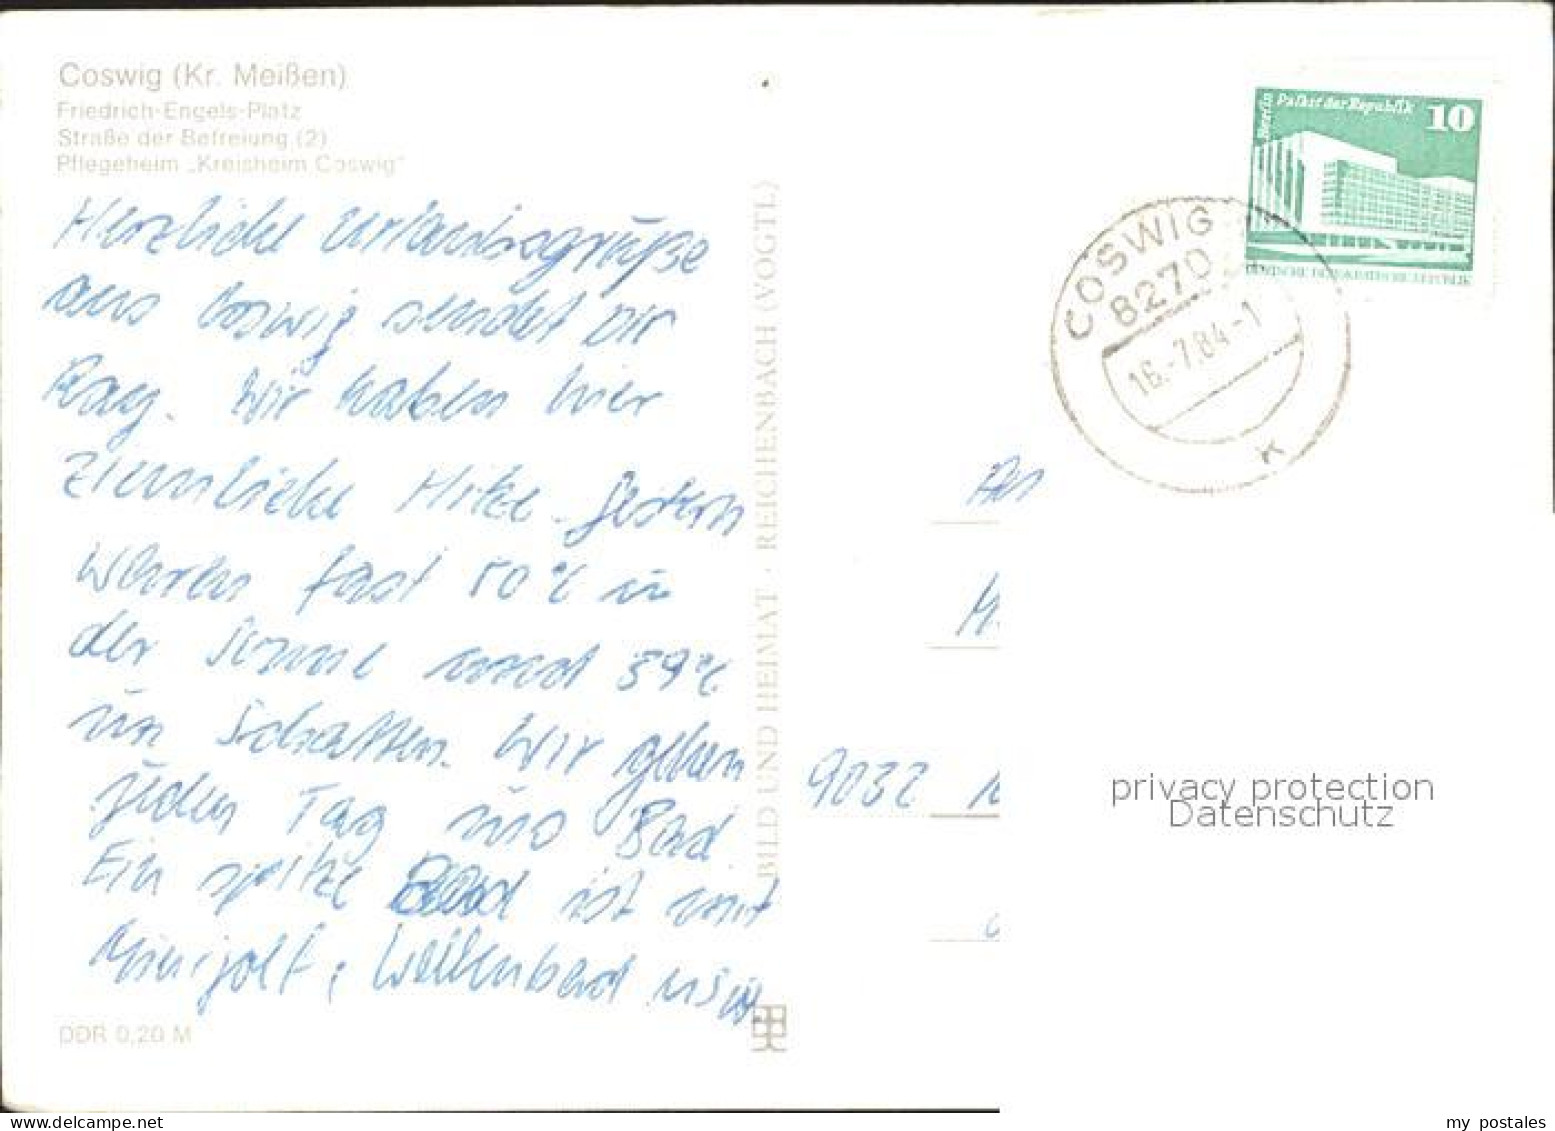 Coswig (Kr. Meißen)
Friedrich-Engels-Platz
Straße der Befreiung (2)
Pflegeheim „Kreisheim Coswig"
Herzliche Urlaubsgrüße
aus Coswig sendet dir
Ray. Wir haben hier
ziemliche Hitze. Gestern
waren fast 50°C in
der Sonne und 39°C
im Schatten. Wir gehen
jeden Tag ins Bad.
Ein spitze Bad ist mit
Minigolf, Wellenbad usw.
DDR 0,20 M
BILD UND HEIMAT · REICHENBACH (VOGTL)
Berlin Palast der Republik 10
DEUTSCHE DEMOKRATISCHE REPUBLIK
COSWIG
8270
16.-7.84-1
K
9032
privacy protection
Datenschutz
www.delcampe.net
my_postales